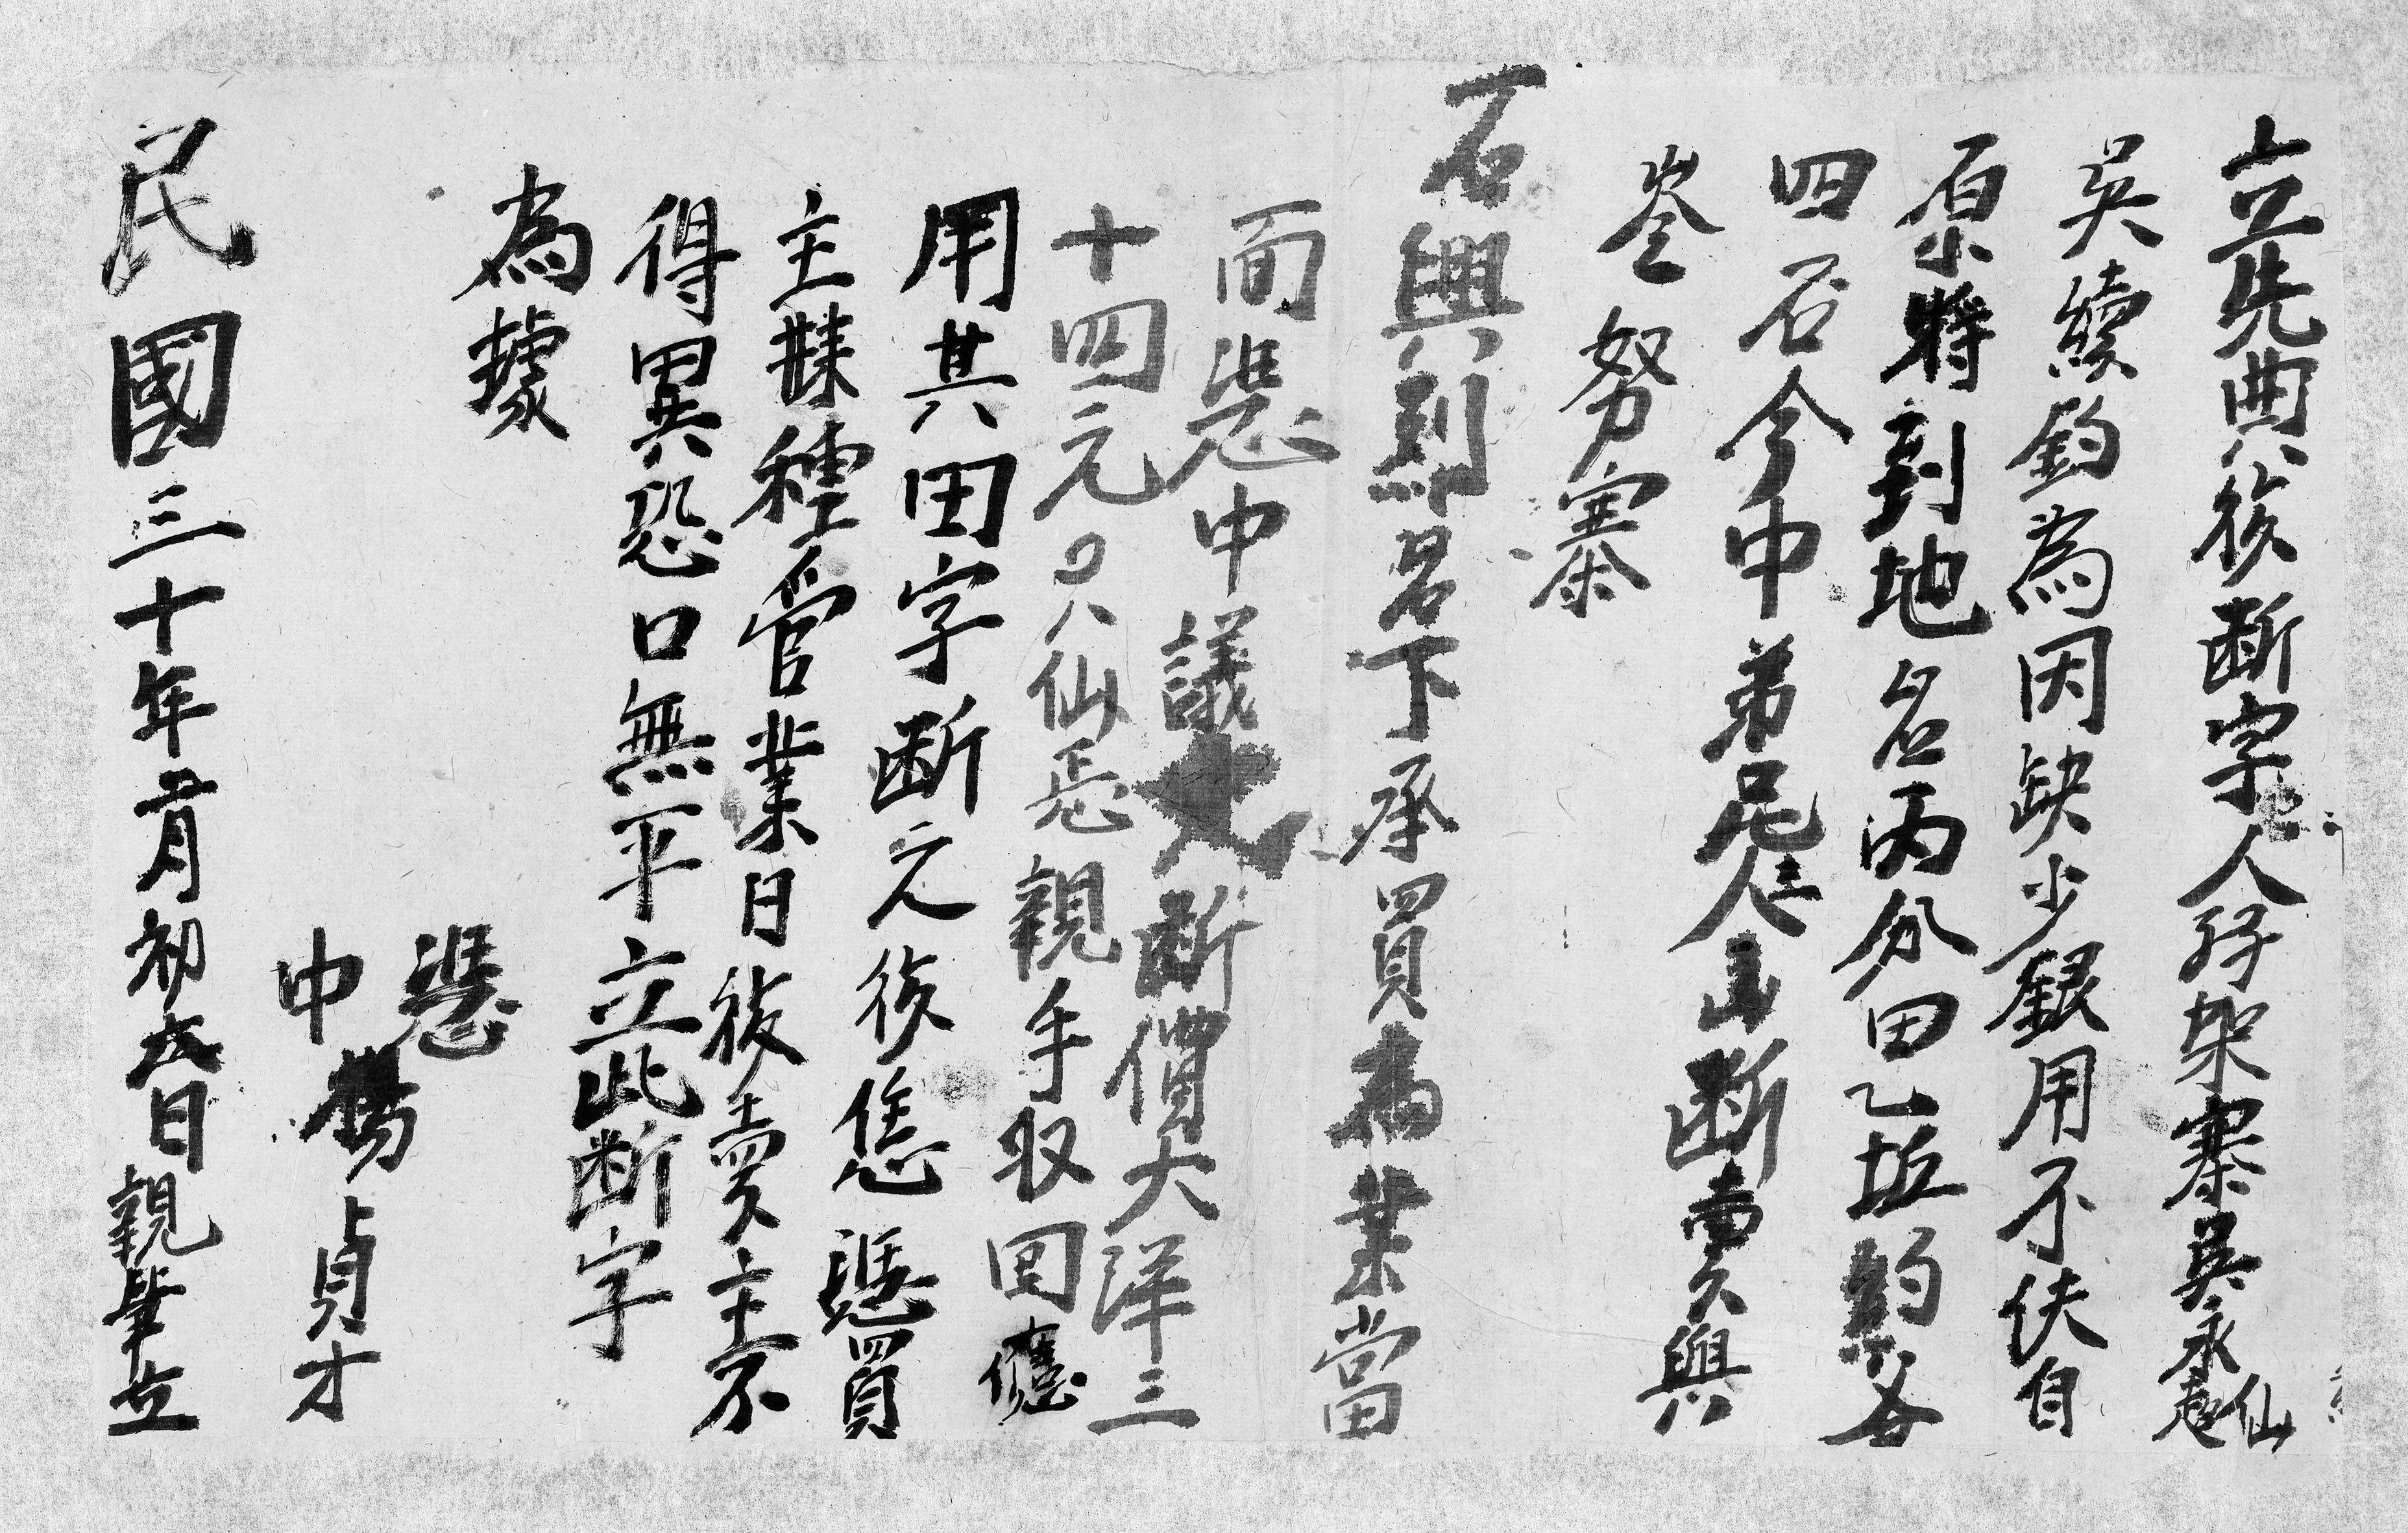 立先典後断字人孖架寨吳永仙超
吳續鈞為因缺少銀用不伕自
原將到地名丙分田乙坵約谷
四石今中弟兄人断賣與
岑努寨
石興烈名下承買為業當
面慿中議断價大洋三
十四元〇八仙正親手収囬應
用其田字断元後恁慿買
主耕種管業日後賣主不
得異恐口無平立此断字
為據
慿
中楊貞才
民國三十年二月初六日親筆立